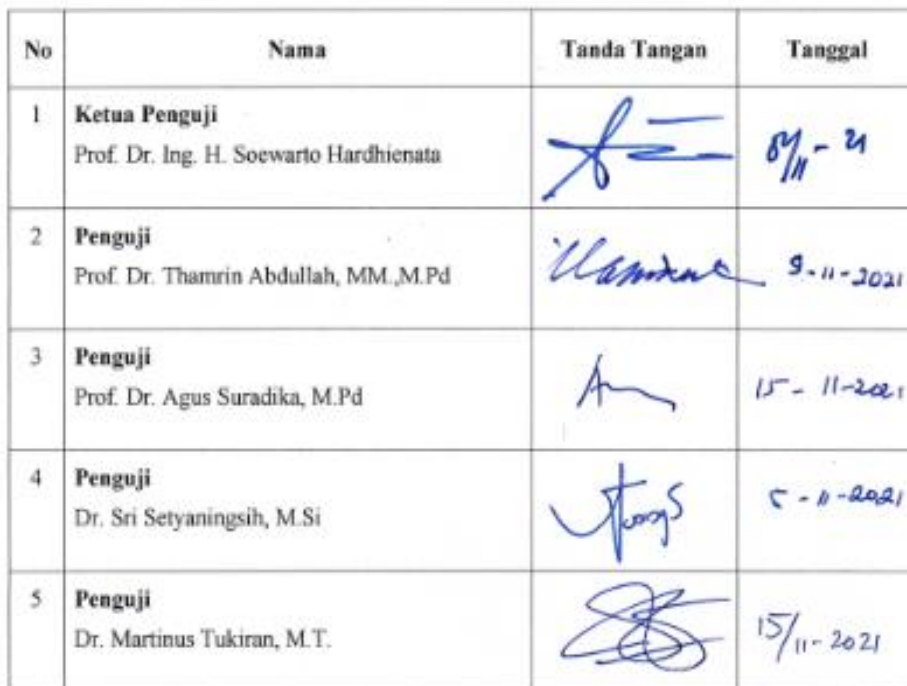 No Nama Tanda Tangan Tanggal
1 Ketua Penguji
Prof. Dr. Ing. H. Soewarto Hardhienata
2 Penguji
Prof. Dr. Thamrin Abdullah, MM.,M.Pd 9-11-2021
3 Penguji
Prof. Dr. Agus Suradika, M.Pd 15-11-2021
4 Penguji
Dr. Sri Setyaningsih, M.Si 5-11-2021
5 Penguji
Dr. Martinus Tukiran, M.T. 15/11-2021